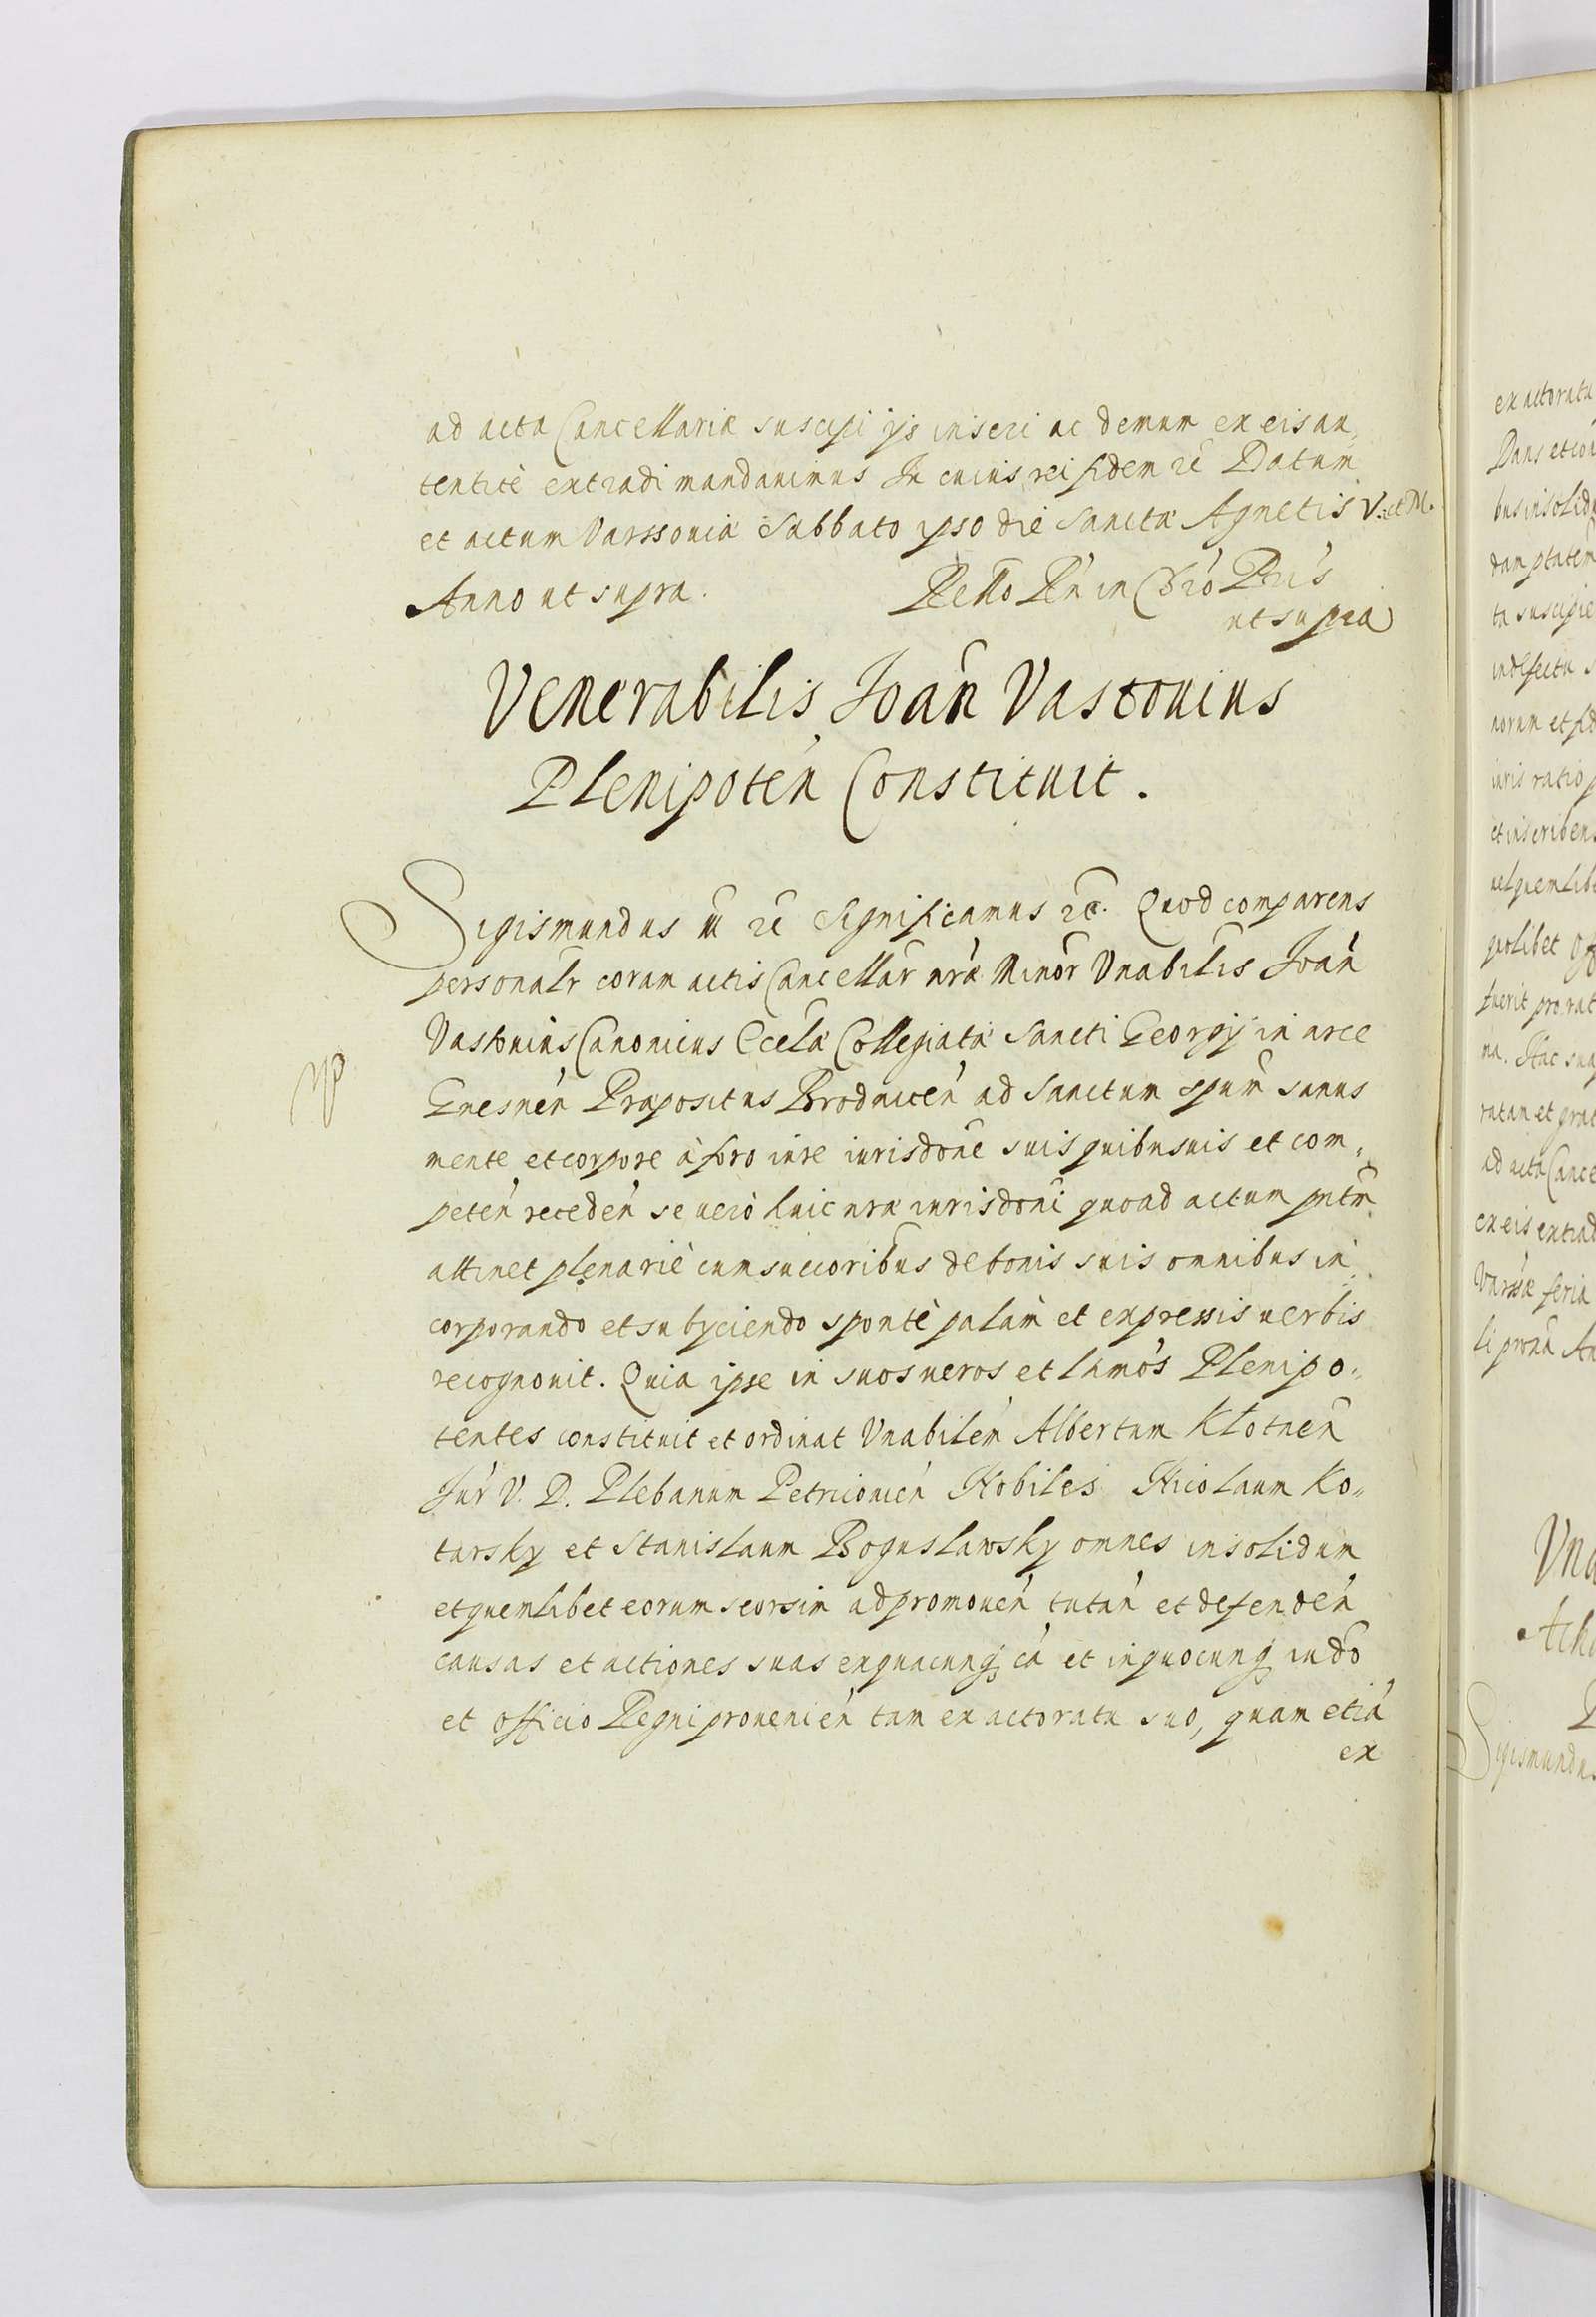 ad acta Cancellariæ suscipi ijs inseri ac demum ex eis au„
tenticè extradi mandavimus In cuius rei fidem etc̃ Datum
et actum Varssoviæ Sabbato ipso die Sanctæ Agnetis V. et M.
Anno ut supra. Rello Rń in
ut supra
Venerabilis Joań Vastouius
Plenipoteń Constituit.
Sigismundus etc̃ Significamus etc̃. Quod comparens
personalr coram actis Cancellar nræ Minor Vnabilis Joań
Vastouius Canonicus Eccla Collegiatæ Sancti Georgij in arce
Gnesneń Præpositus Brodniceń ad Sanctum spum̃ sanus
mente et corpore à foro iure iurisdone suis quibusuis et com„
peteń recedeń se uerò huic nræ iurisdoni quoad actum pntm̃
attinet plenariè cum succoribus de bonis suis omnibus in
corporando et subijciendo spontè palam et expressis uerbis
recognouit. Quia ipse in suos ueros et ltmos Plenipo„
tentes constituit et ordinat Vnabilem Albertum Klotneń
Jur V. D. Plebanum Petricouień Nobiles Nicolaum Ko„
tarsky et Stanislaum Boguslawsky omnes insolidum
et quemlibet eorum seorsim ad promoueń tutań et defendeń
causas et actiones suas ex quacunq; ca et in quocunq; iudo
et officio Regni prouenień tam ex actoratu suo, quam etia
ex
ex actoratu
busin solidu
ta suscipie
indefectu
iuris ratio
et inscriben
quolibet
fuerit pro rat
na. Hac sua
ratam et grat
ad acta Cance
ex eis extrad
feria
Vna
Sigismundus